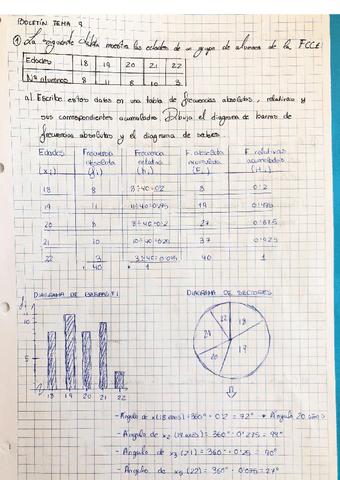 BOLETÍN TEMA 9
① La siguiente tabla muestra las edades de un grupo de alumnos de la FCCE
Edades 18 19 20 21 22
Nº alumnos 8 11 8 10 3
a) Escribe estos datos en una tabla de frecuencias absolutas, relativas y
sus correspondientes acumuladas. Dibuja el diagrama de barras de
frecuencias absolutas y el diagrama de sectores.
Edades Frecuencia Frecuencia F. absoluta F. relativas
absoluta relativa acumulada acumuladas
(xi) (fi) (hi) (Fi) (Hi)
18 8 8÷40=0'2 8 0'2
19 11 11÷40=0'275 19 0'475
20 8 8÷40=0'2 27 0'675
21 10 10÷40=0'25 37 0'925
22 3 3÷40=0'075 40 1
40 1
DIAGRAMA DE BARRAS fi
DIAGRAMA DE SECTORES
10
5
18 19 20 21 22
22 18
21
20 19
- Ángulo de x1 (18 años) = 360° · 0'2 = 72° * Ángulo 20 años
- Ángulo de x2 (19 años) = 360° · 0'275 = 99°
- Ángulo de x3 (21) = 360° · 0'25 = 90°
- Ángulo de x5 (22) = 360° · 0'075 = 27°